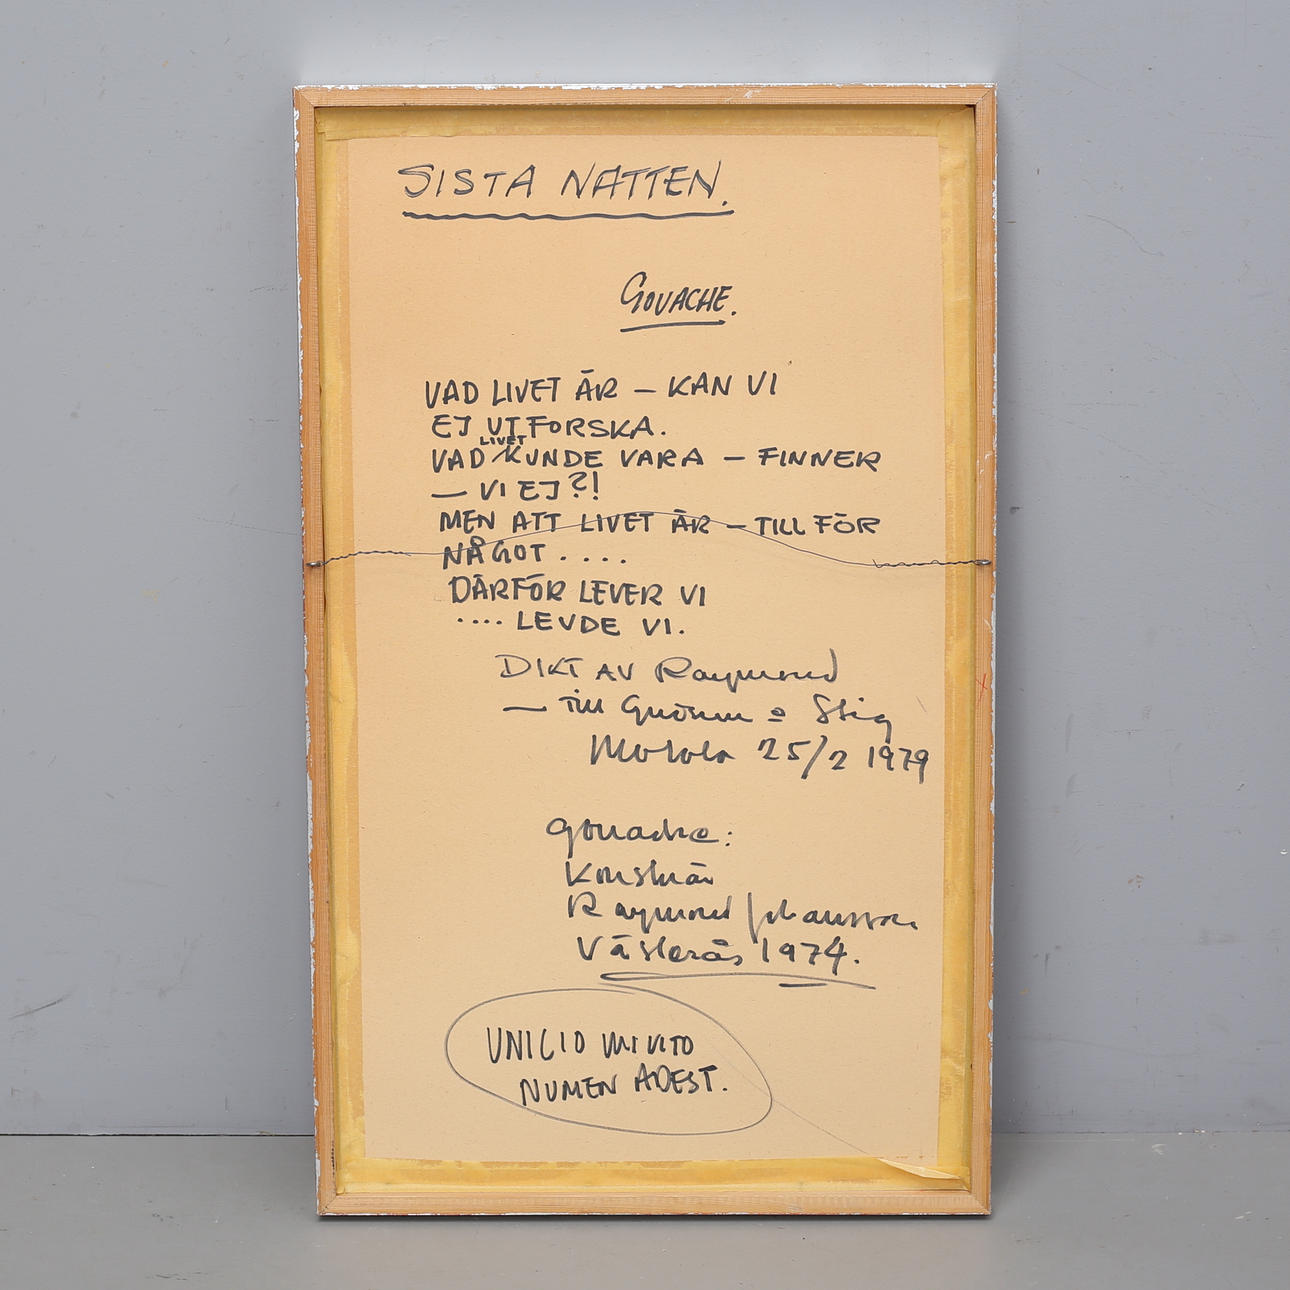 SISTA NATTEN.
GOUACHE.
VAD LIVET ÄR – KAN VI
EJ UTFORSKA.
VAD LIVET KUNDE VARA – FINNER
– VI EJ?!
MEN ATT LIVET ÄR – TILL FÖR
NÅGOT....
DÄRFÖR LEVER VI
.... LEVDE VI.
DIKT AV Raymond
– till Stig
Motala 25/2 1979
gouache:
Konstnär
Raymond Johansson
Västerås 1974.
NUMEN ADEST.